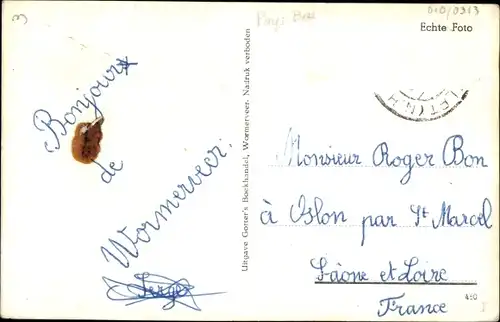 Pays Bas
010/0313
Echte Foto
Bonjour
de
Wormerveer.
Serge
Uitgave Gorter's Boekhandel, Wormerveer. Nadruk verboden
Monsieur Roger Bon
à Oslon par St Marcel
Sâone et Loire
France
480